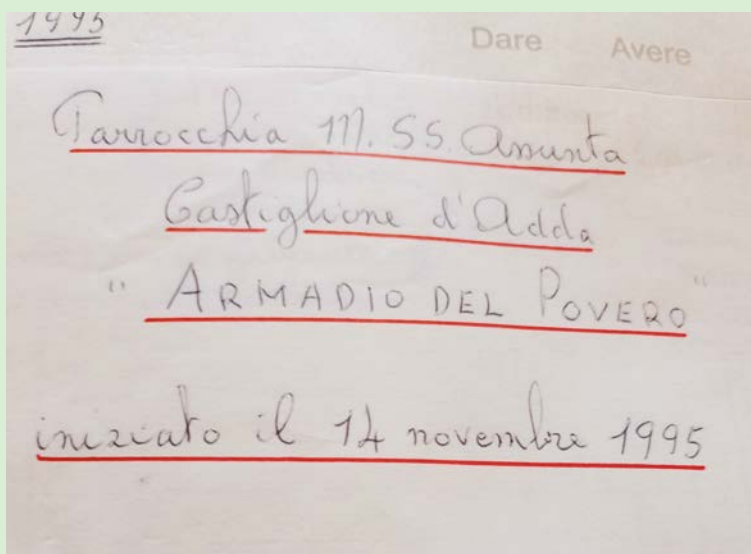 1995
Dare Avere
Parrocchia M. SS. Assunta
Castiglione d'Adda
"ARMADIO DEL POVERO"
iniziato il 14 novembre 1995